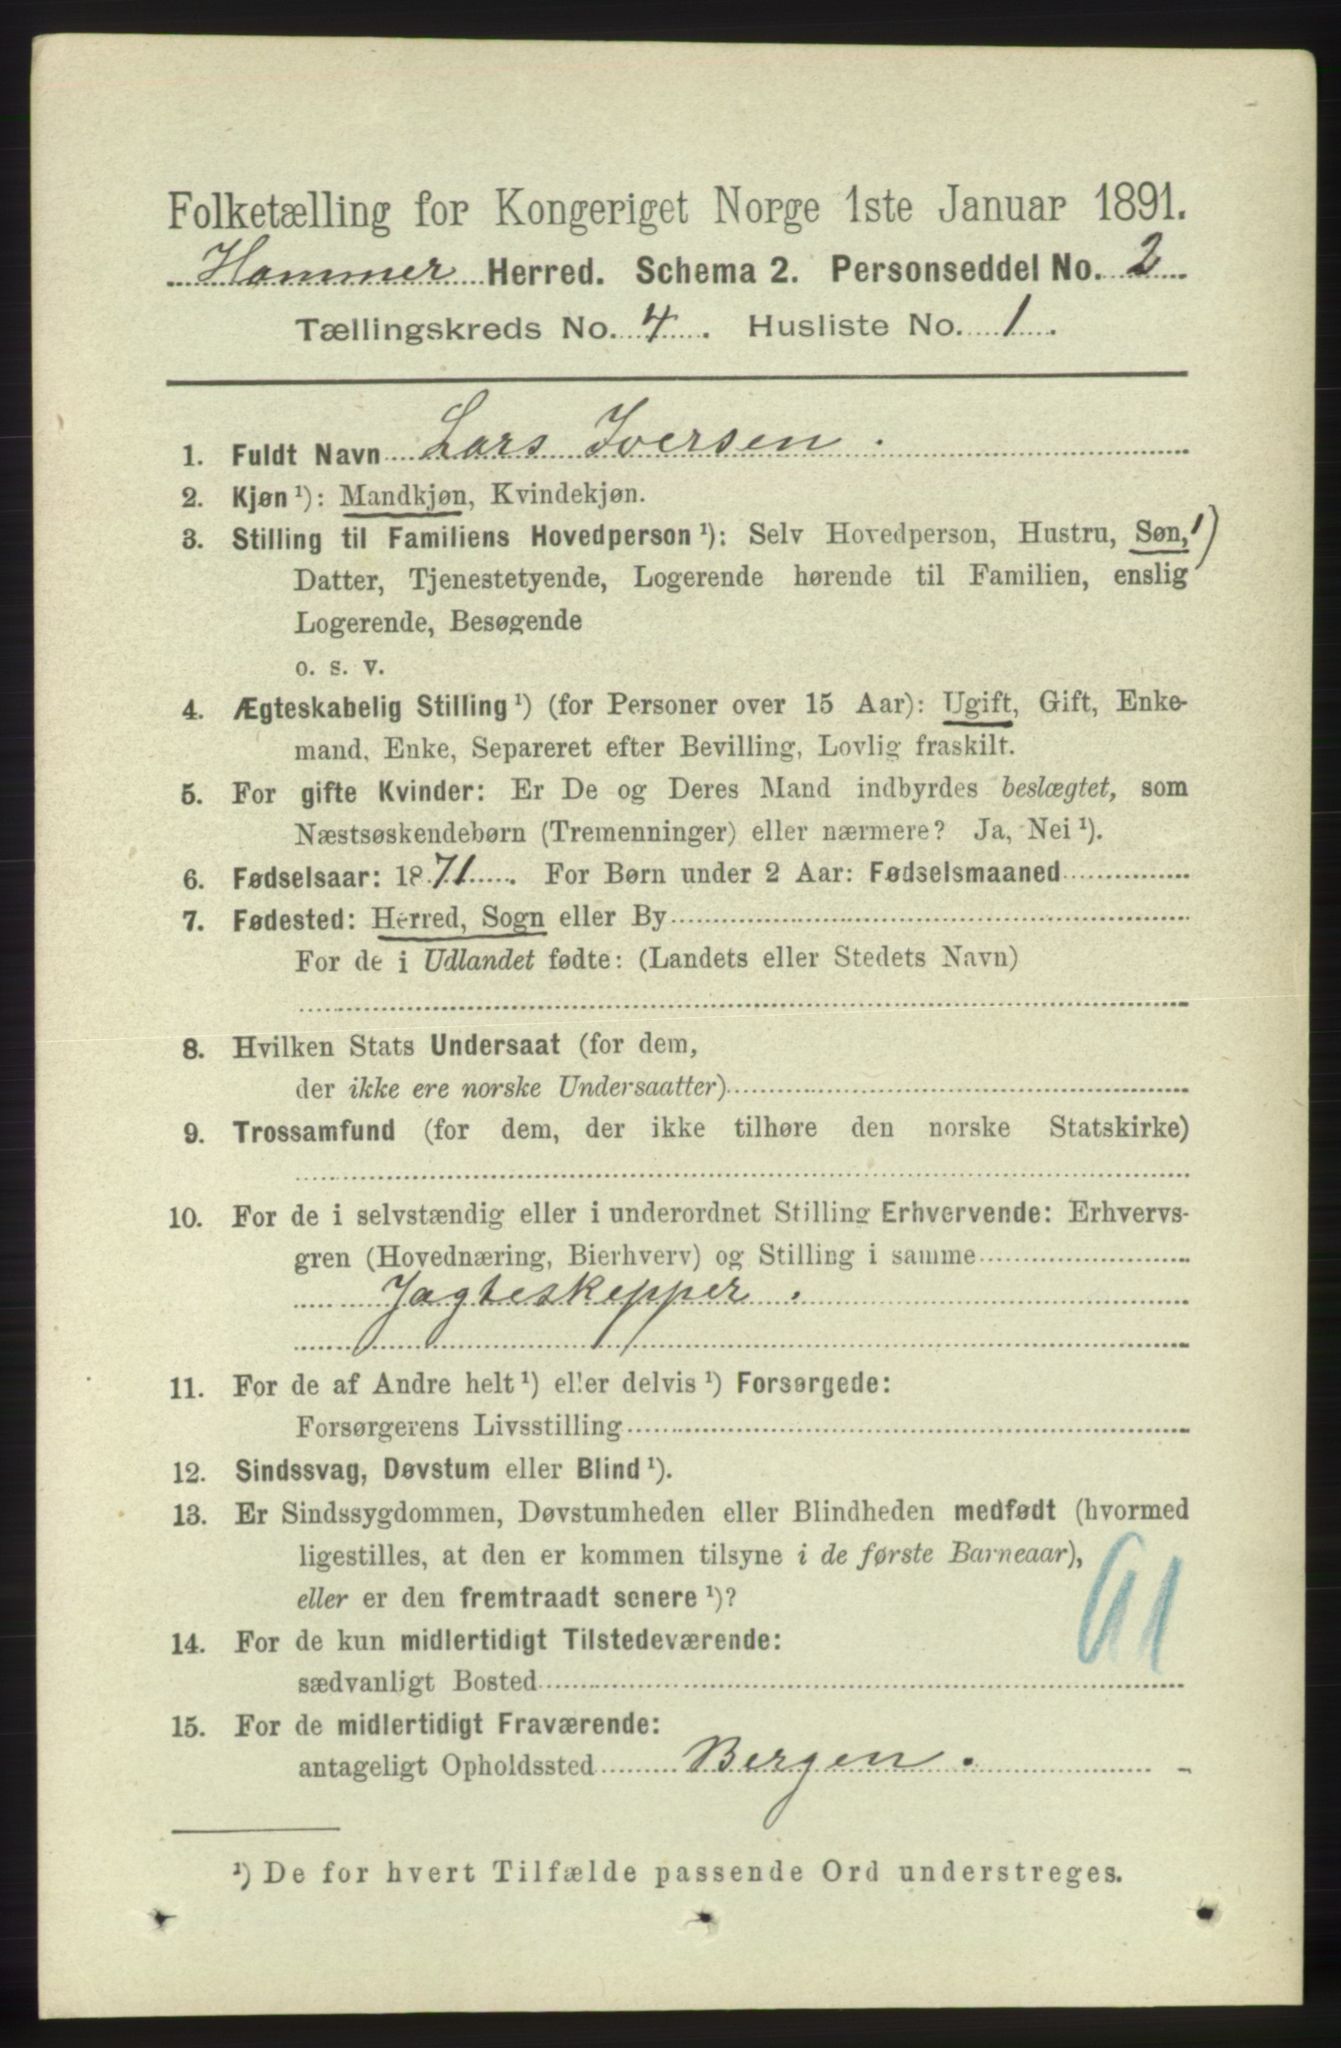 Folketælling for Kongeriget Norge 1ste Januar 1891.
Hammer Herred. Schema 2. Personseddel No. 2
Tællingskreds No. 4. Husliste No. 1.
1. Fuldt Navn Lars Iversen.
2. Kjøn ¹): Mandkjøn, Kvindekjøn.
3. Stilling til Familiens Hovedperson ¹): Selv Hovedperson, Hustru, Søn, 1)
Datter, Tjenestetyende, Logerende hørende til Familien, enslig
Logerende, Besøgende
o. s. v.
4. Ægteskabelig Stilling ¹) (for Personer over 15 Aar): Ugift, Gift, Enke-
mand, Enke, Separeret efter Bevilling, Lovlig fraskilt.
5. For gifte Kvinder: Er De og Deres Mand indbyrdes beslægtet, som
Næstsøskendebørn (Tremenninger) eller nærmere? Ja, Nei ¹).
6. Fødselsaar: 1871. For Børn under 2 Aar: Fødselsmaaned
7. Fødested: Herred, Sogn eller By
For de i Udlandet fødte: (Landets eller Stedets Navn)
8. Hvilken Stats Undersaat (for dem,
der ikke ere norske Undersaatter)
9. Trossamfund (for dem, der ikke tilhøre den norske Statskirke)
10. For de i selvstændig eller i underordnet Stilling Erhvervende: Erhvervs-
gren (Hovednæring, Bierhverv) og Stilling i samme
Jagteskepper.
11. For de af Andre helt ¹) eller delvis ¹) Forsørgede:
Forsørgerens Livsstilling
12. Sindssvag, Døvstum eller Blind ¹).
13. Er Sindssygdommen, Døvstumheden eller Blindheden medfødt (hvormed
ligestilles, at den er kommen tilsyne i de første Barneaar),
eller er den fremtraadt senere ¹)?
14. For de kun midlertidigt Tilstedeværende:
sædvanligt Bosted
15. For de midlertidigt Fraværende:
antageligt Opholdssted Bergen.
¹) De for hvert Tilfælde passende Ord understreges.